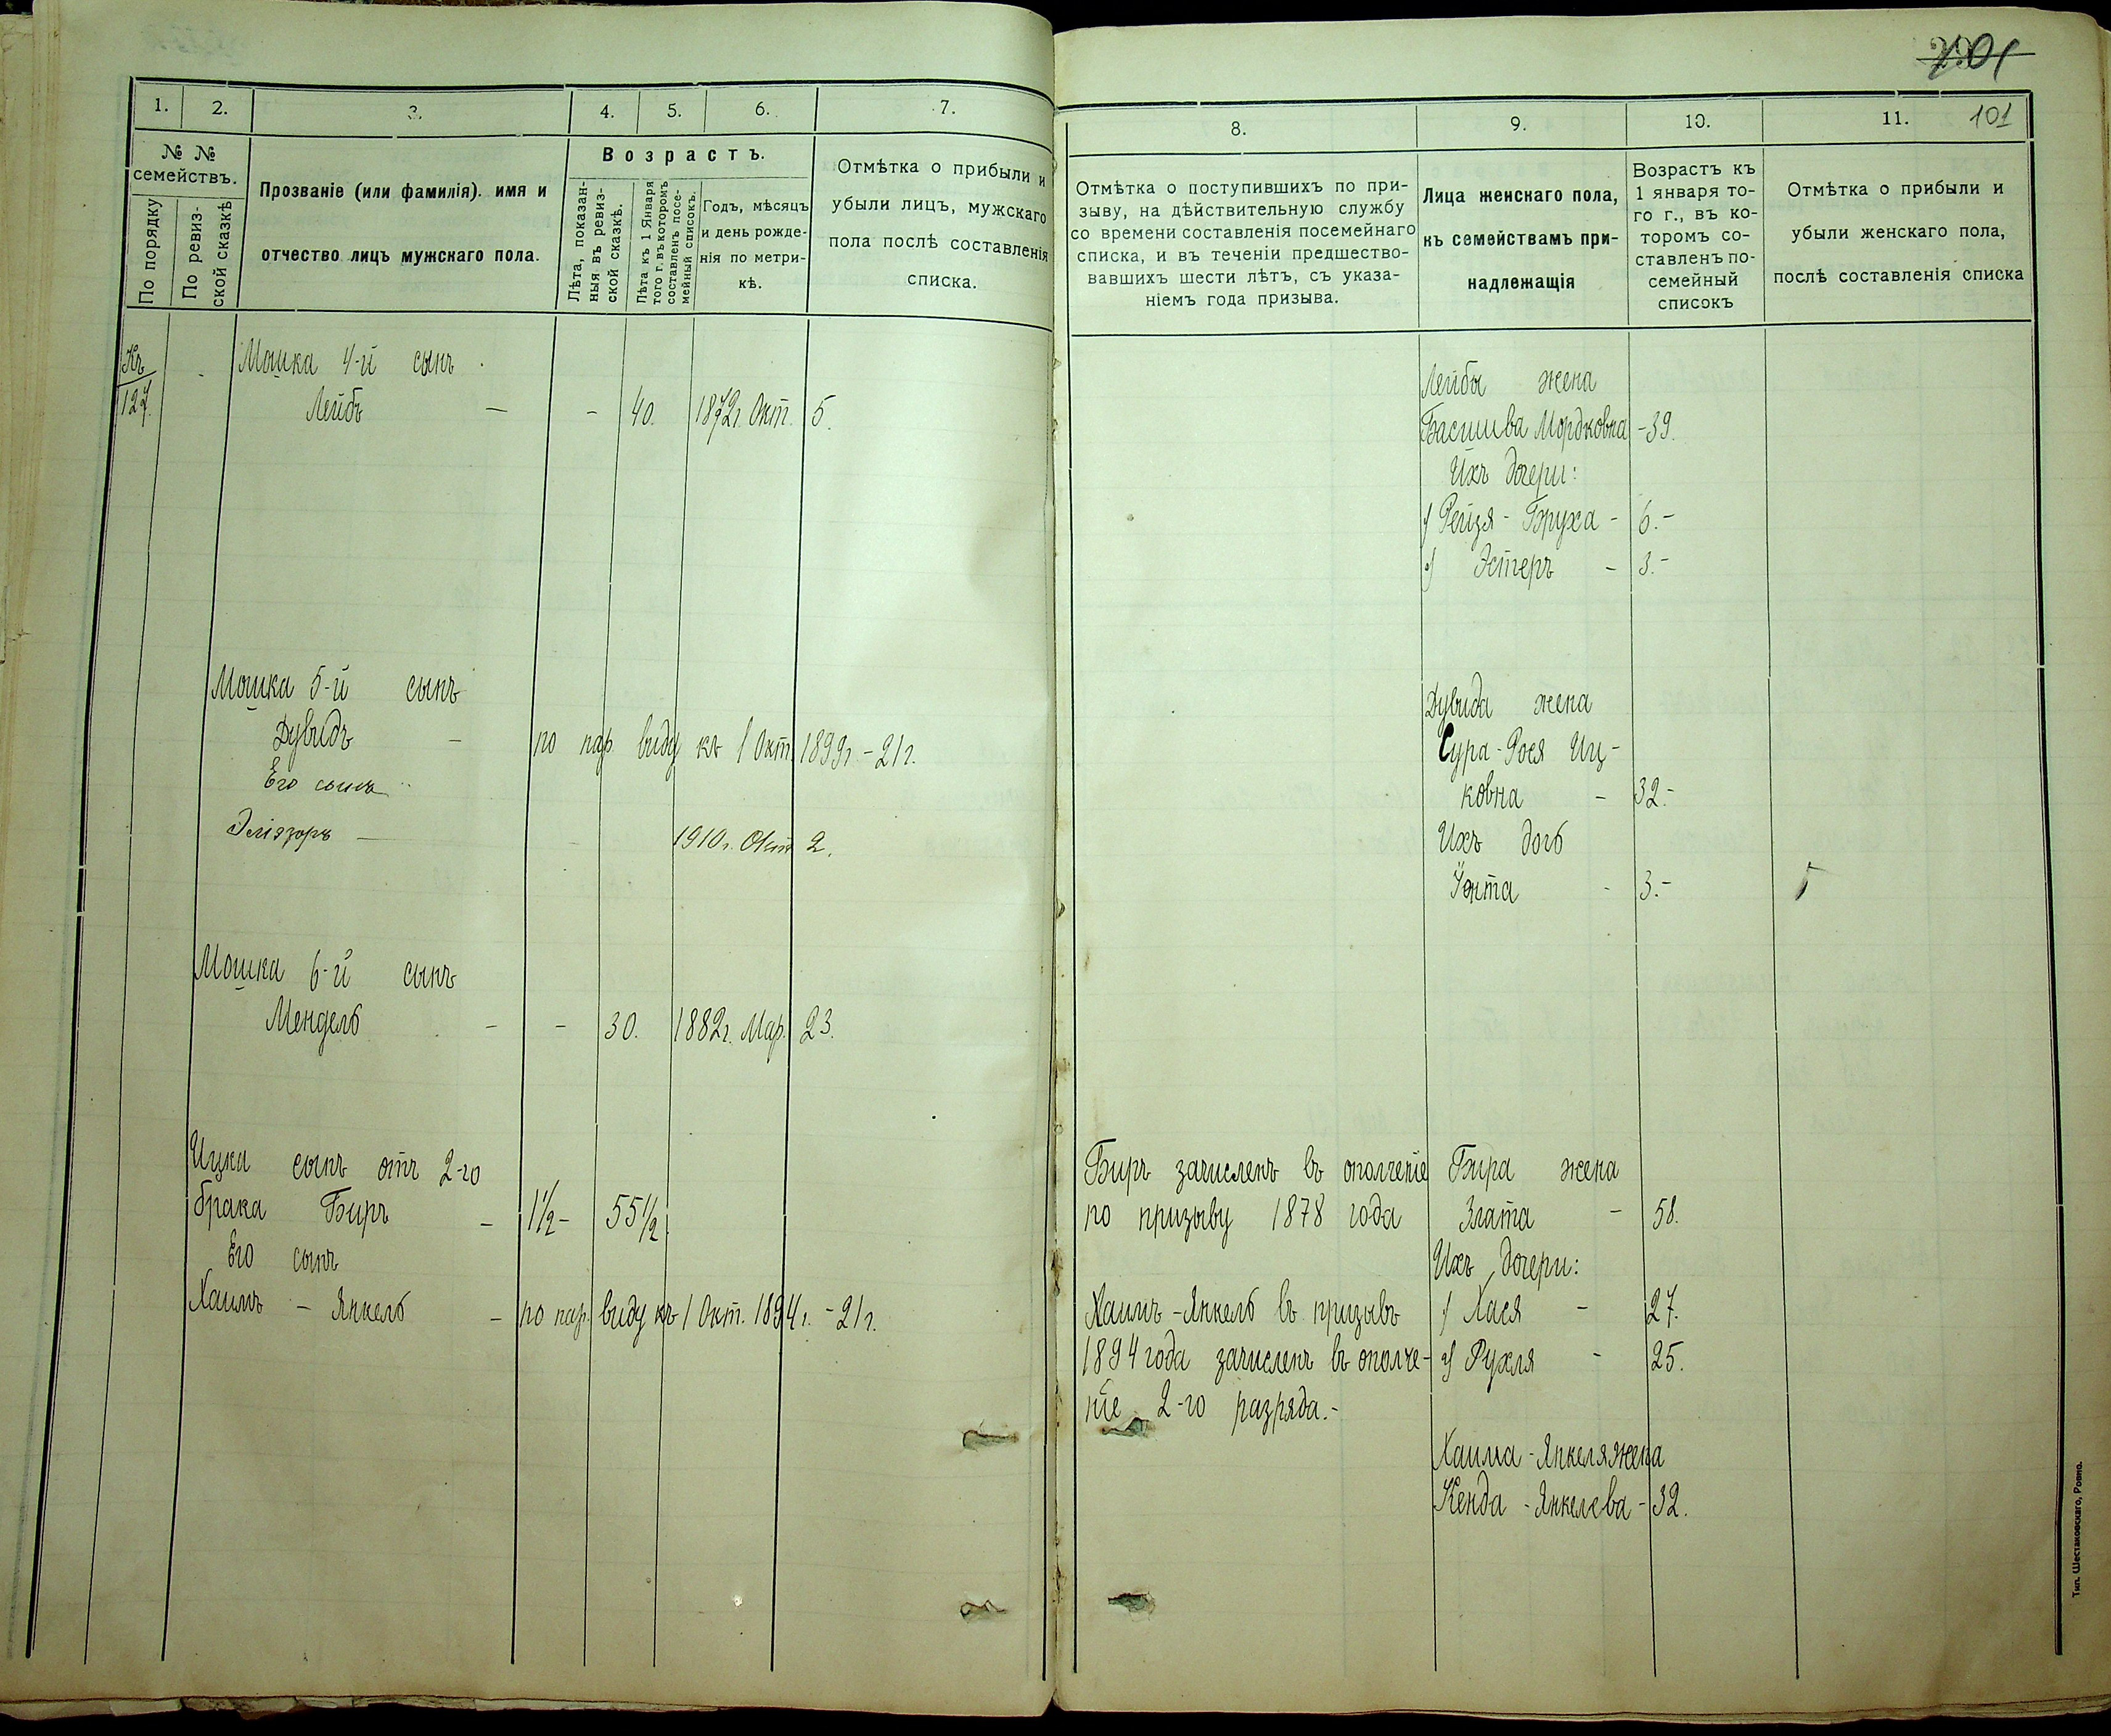 101
1. 2. 3. 4. 5. 6. 7.
№ № семействъ.
По порядку
По ревизской сказкѣ
Прозваніе (или фамилія). имя и
отчество лицъ мужскаго пола.
Возрастъ.
Лѣта, показан-
ныя въ ревиз-
ской сказкѣ.
Лѣта къ 1 Января
того г. въ которомъ
составленъ посе-
мейный списокъ.
Годъ, мѣсяцъ
и день рожде-
нія по метри-
кѣ.
Отмѣтка о прибыли и
убыли лицъ, мужскаго
пола послѣ составленія
списка.
Къ
127.
Мошка 4-й сынъ
Лейбъ — - 40. 1872г. Окт. 5.
Мошка 5-й сынъ
Дувидъ - по нар. виду къ 1 Окт. 1899г. - 21г.
Его сынъ
Эліазоръ — 1910г. Окт 2.
Мошка 6-й сынъ
Мендель - - 30. 1882г. Мар. 23.
Ицка сынъ отъ 2-го
брака Биръ - 1 1/2 - 55 1/2.
Его сынъ
Хаимъ - Янкель - по нар. виду къ 1 Окт. 1894г. - 21г.
8. 9. 10. 11. 101
Отмѣтка о поступившихъ по при-
зыву, на дѣйствительную службу
со времени составленія посемейнаго
списка, и въ теченіи предшество-
вавшихъ шести лѣтъ, съ указа-
ніемъ года призыва.
Лица женскаго пола,
къ семействамъ при-
надлежащія
Возрастъ къ
1 января то-
го г., въ ко-
торомъ со-
ставленъ по-
семейный
списокъ
Отмѣтка о прибыли и
убыли женскаго пола,
послѣ составленія списка
Лейбы жена
Басшива Мордковна - 39.
Ихъ дочери:
1) Рейзя - Бруха - 6.-
2) Эстеръ - 3.-
Дувида жена
Сура - Рося Иц-
ковна - 32.-
Ихъ дочь
- 3.-
Биръ зачисленъ въ ополченіе
по призыву 1878 года
Бира жена
Злата - 58.
Ихъ дочери:
Хаимъ - Янкель въ призывъ
1894 года зачисленъ въ ополче-
ніе 2-го разряда.-
1) Хася - 27.
2) Рухля - 25.
Хаима - Янкеля жена
Кенда - Янкелева - 32.
Тип. Шестаковскаго, Ровно.